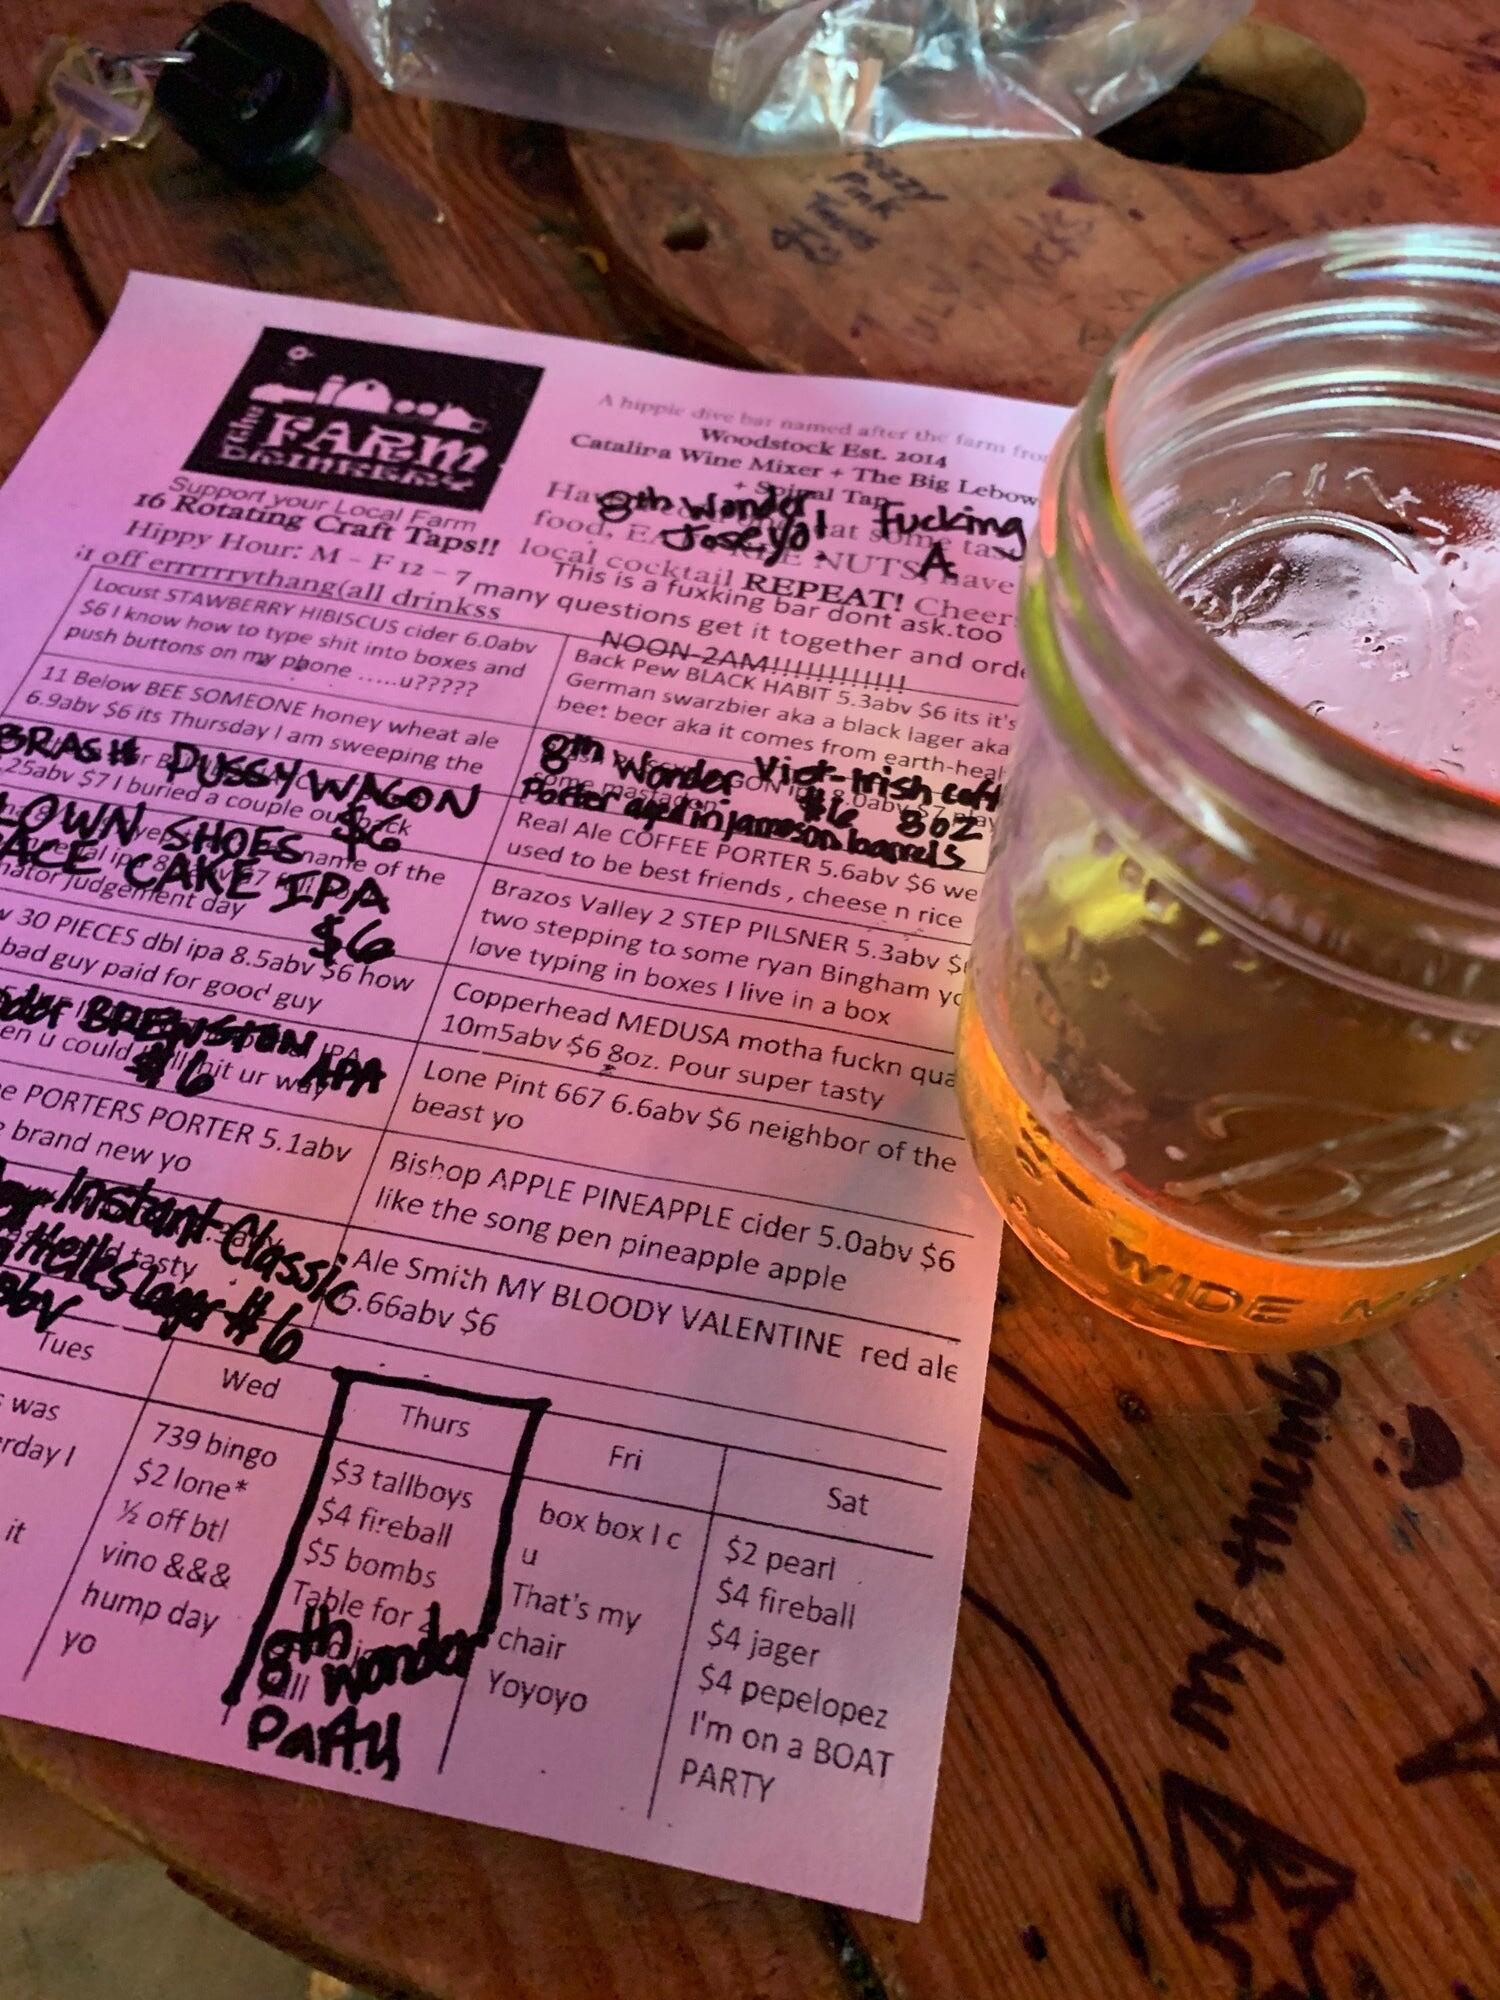 The
FARM
DRINKERY
Support your Local Farm
16 Rotating Craft Taps!!
Hippy Hour: M - F 12 - 7
off errrrrrythang(all drinkss
A hippie dive bar named after the farm from
Woodstock Est. 2014
Catalina Wine Mixer + The Big Lebow
+ Spinal Tap
8th Wonder
Joseyo!
fucking
A
food,
NUTS have
local cocktail REPEAT! Cheer
This is a fuxking bar dont ask.too
many questions get it together and orde
NOON-2AM!!!!!!!!!!!!!
Locust STAWBERRY HIBISCUS cider 6.0abv
$6 I know how to type shit into boxes and
push buttons on my phone .....u?????
Back Pew BLACK HABIT 5.3abv $6 its it's
German swarzbier aka a black lager aka
beet beer aka it comes from earth-heal
11 Below BEE SOMEONE honey wheat ale
6.9abv $6 its Thursday I am sweeping the
8th Wonder Viet-Irish coff
porter aged in jameson barrels
$6 8oz
BRASH PUSSYWAGON
$6
.25abv $7 I buried a couple out back
Real Ale COFFEE PORTER 5.6abv $6 we
used to be best friends , cheese n rice
LOWN SHOES
ACE CAKE IPA
$6
name of the
judgement day
Brazos Valley 2 STEP PILSNER 5.3abv $
two stepping to some ryan Bingham yo
love typing in boxes I live in a box
30 PIECES dbl ipa 8.5abv $6 how
bad guy paid for good guy
Copperhead MEDUSA motha fuckn qua
10m5abv $6 8oz. Pour super tasty
BREWSTON
APA
$6
en u could hit ur way
Lone Pint 667 6.6abv $6 neighbor of the
beast yo
PORTERS PORTER 5.1abv
brand new yo
Bishop APPLE PINEAPPLE cider 5.0abv $6
like the song pen pineapple apple
Instant Classic
Helles lager $6
abv
tasty
Ale Smith MY BLOODY VALENTINE red ale
6.66abv $6
Tues
was
erday I
it
Wed
739 bingo
$2 lone*
½ off btl
vino &&&
hump day
yo
Thurs
$3 tallboys
$4 fireball
$5 bombs
Table for 2
8th
Wonder
Party
Fri
box box I c
u
That's my
chair
Yoyoyo
Sat
$2 pearl
$4 fireball
$4 jager
$4 pepelopez
I'm on a BOAT
PARTY
WIDE MO